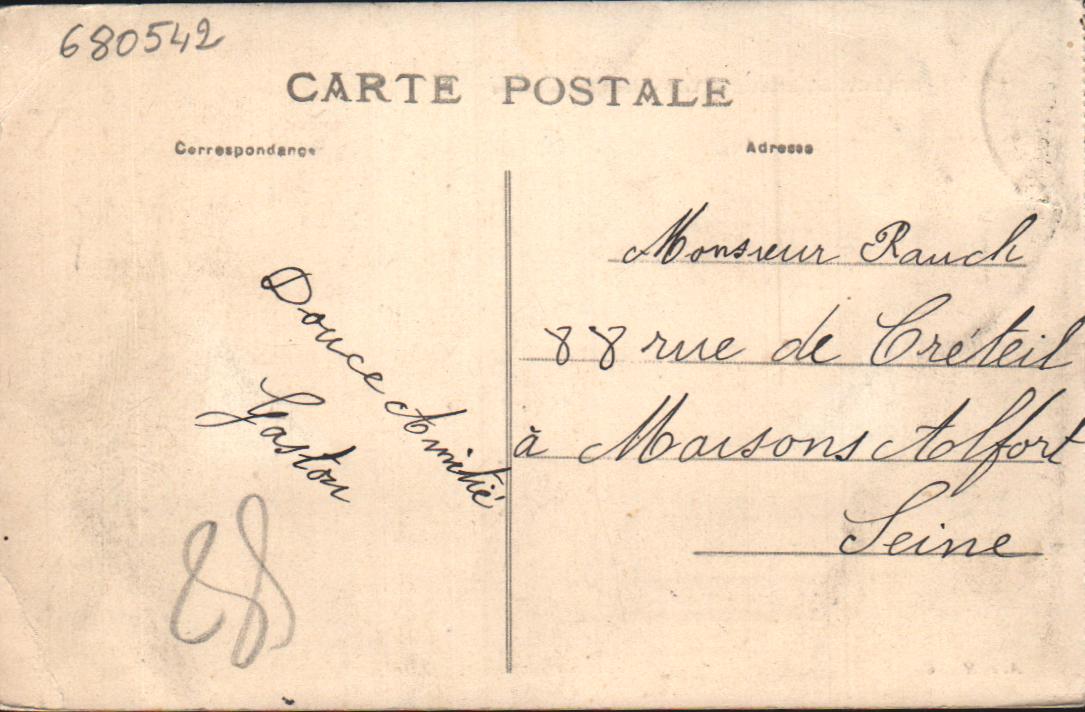 680542
CARTE POSTALE
Correspondance
Adresse
Monsieur Rauch
88 rue de Créteil
à Maisons Alfort
Seine
Douce Amitié
Gaston